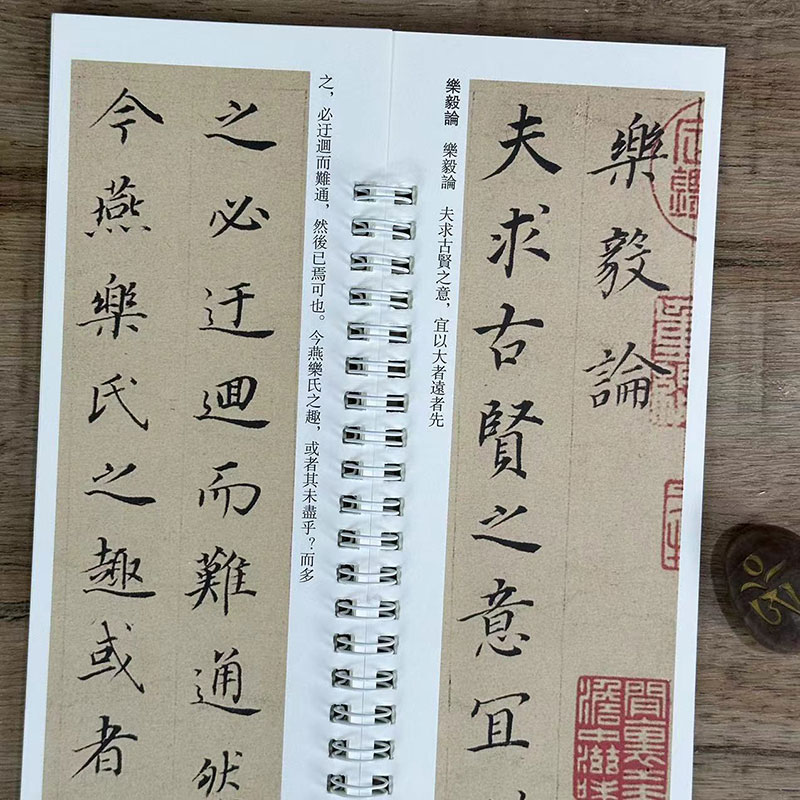 樂毅論
夫求古賢之意宜
樂毅論 樂毅論 夫求古賢之意，宜以大者遠者先
之，必迂迴而難通，然後已焉可也。今燕樂氏之趣，或者其未盡乎？而多
之必迂迴而難通然
今燕樂氏之趣或者